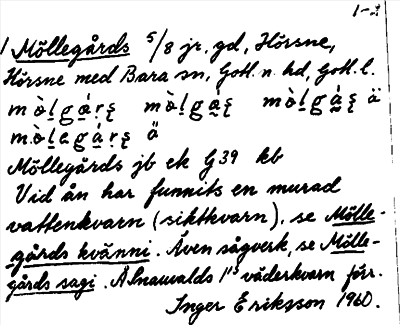 1-2
1 Möllegårds 5/8 jr. gd, Hörsne,
Hörsne med Bara sn, Gotl. n. hd, Gotl. l.
Möllegårds jb ek G 39 kb
Vid ån har funnits en murad
vattenkvarn (siktkvarn), se Mölle-
gårds kvänni. Även sågverk, se Mölle-
gårds sagi. Ålnauvalds 1 1/3 väderkvarn förr.
Inger Eriksson 1960.